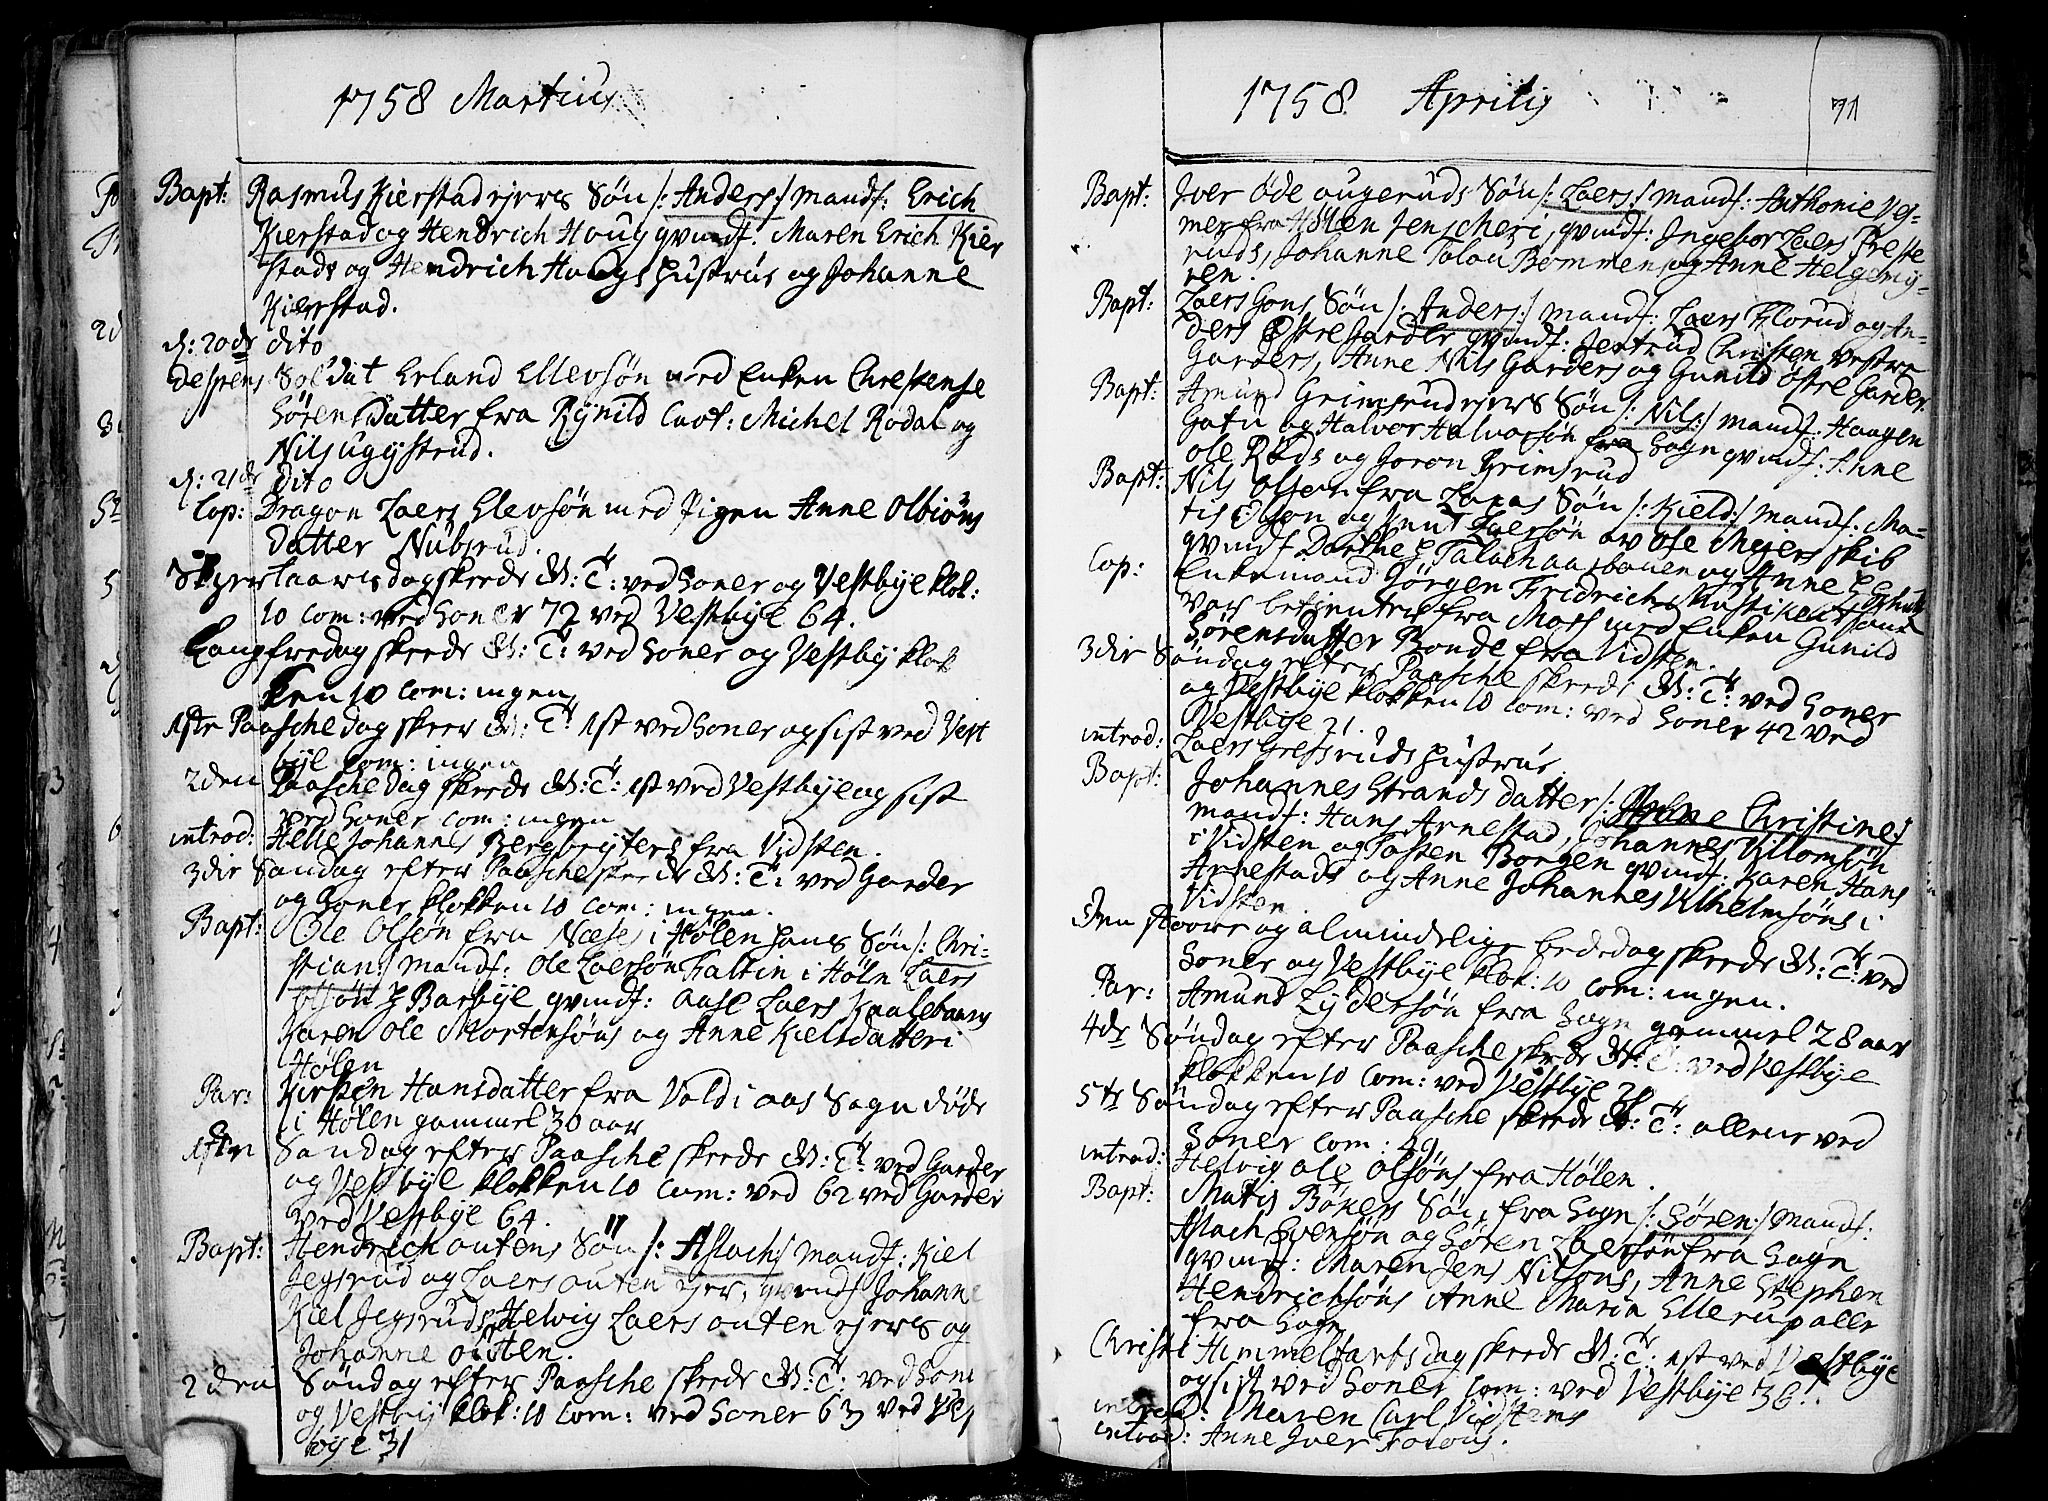 1758 Martius
Bapt: Rasmus Kierstad ejers Søn /: Anders :/ mandf: Erich
Kierstad og Hendrich Houg qvindf: Maren Erich Kier
stads og Hendrich Hougs Hustrue og Johanne
Kierstad.
d: 20de dito
Despens Soldat Erland Ellevsøn med Enken Chrestense
Sørensdatter fra Rynild Cavt: Michel Rødal og
Nils ugystrud.
d: 21de dito
Cop: Dragon Laers Elevsøn med Pigen Anne Olbiøns
datter Nubsrud.
Skjertaarsdag skeede G: T: ved Soner og Vestbye klok:
10 Com: ved Soner 72 ved Vestbye 64.
Langfredag skeede G: T: ved Soner og Vestby klok
ken 10 Com: ingen
1ste Paaschedag skeer G: T: 1st ved Soner og sist ved Vest
bye Com: ingen
2den Paaschedag skeede G: T: 1st ved Vestbye og sist
ved Soner Com: ingen
introd: Helle Johannes Bergbryters fra Vidsten.
3die Søndag efter Paasche skeede G: T: ved Garder
og Soner klokken 10 Com: ingen.
Bapt: Ole Olsøn fra Næses i Hølen Hans Søn /: Chri-
stian :/ mandf: Ole Laersøn Faltin i Høln Laers
Olsøn Barbye qvindf: Aase Laers Kaalebaans
Karen Ole Mortensøns og Anne Kielsdatter i
Hølen
Par: Kirsten Hansdatter fra Vold i aas Sogn døde
i Hølen gammel 30 aar
1ste Søndag efter Paasche skeede G: T: ved Garder
og Vestbye klokken 10 Com: ved 62 ved Garder
ved Vestbye 64.
Bapt: Hendrich outens Søn /: Aslach :/ mandf: Kiel
Jegsrud og Laers outen ejer, qvindf Johanne
Kiel Jegsruds, Helvig Laers outen ejers og
Johanne outen.
2den Søndag efter Paasche skeede G: T: ved Soner
og Vestby klok: 10 Com: ved Soner 63 ved Vest
bye 31
1758 Aprilis 71
Bapt: Iver Øde ougeruds Søn /: Laers :/ mandf: Anthonie Ves-
mer fra Hølen Jens Cheri, qvindf: Ingebor Laers Preste
ruds, Johanne Bommen og Anne Helge
ren.
Bapt: Laers Søn /: Anders :/ mandf: Laers Florud og An-
ders Østre Garder qvindf: Jertrud Christen Vestre
Garders, Anne Nils Garders og Gunild østre Garder.
Bapt: Amund Grimsrud ejers Søn /: Nils :/ mandf: Haagen
Gatu og Halvor Halvorsøn fra Sogn qvindf: Anne
Ole Røds og Joron Grimsrud
Bapt: Nils Olsen fra Søn /: Kield :/ mandf: Ma-
tis Olson og Knut Laersøn av Ole Mejers skib
qvindf Dorthe og Anne
Cop: Enkemand Jørgen Fridrich
betjenter fra Moss med Enken Gunild
Sørensdatter Bonde fra Vidsten.
3die Søndag efter Paasche skeede G: T: ved Soner
og Vestbye klokken 10 Com: ved Soner 42 ved
Vestbye 21.
introd: Laers Gresruds Hustrue
Bapt: Johannes Strands datter /: Anne Christine :/
mandf: Hans Arnestad, Johannes Villomsøn
i Vidsten og Tosten Borgen qvindf: Karen Hans
Arnestads og Anne Johannes Vilhelmsøns i
Vidsten.
Den stoore og almindelige bededag skeede G: T: ved
Soner og Vestbye klok: 10 Com: ingen.
Par: Amund Lydersøn fra Sogn gammel 28 aar
4de Søndag efter Paasche skeede G: T: ved Vestbye
klokken 10 Com: ved Vestbye
5te Søndag efter Paasche skeede G: T: allene ved
Soner Com: 49
introd: Helvig Ole Olsøns fra Hølen.
Bapt: Matis Bøners Søn, fra Sogn /: Søren :/ mandf:
Aslach Evensøn og Søren Laersøn fra Sogn
qvindf: Maren Jens Nilsons, Anne Stephen
Hendrichsøns Anne Maria Ellerup alle
fra Sogn
Christi Himmelfartsdag skeede G: T: 1st ved Vestbye
og sist ved Soner Com: ved Vestbye 36.
introd: Maren Carl Vidstens
introd: Anne Iver Forous.